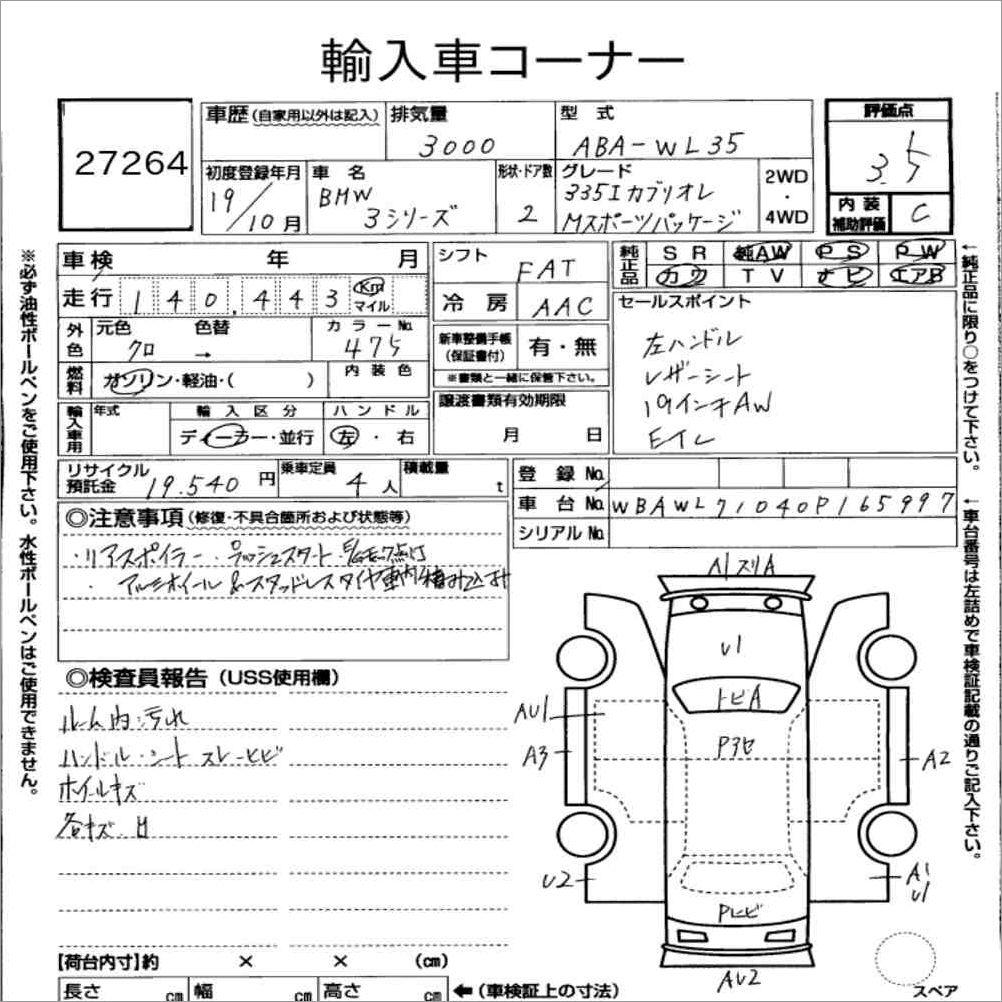 輸入車コーナー
27264
車歴 (自家用以外は記入)
排気量
3000
型 式
ABA-WL35
評価点
3.5
内装補助評価
C
初度登録年月
19/10月
車 名
BMW
3シリーズ
形状・ドア数
2
グレード
335Iカブリオレ
Mスポーツパッケージ
2WD
・
4WD
車検 年 月
走行 140,443 Km マイル
外色
元色 色替
クロ →
カラーNo.
475
燃料
ガソリン・軽油・( )
内装色
輸入車用
年式
輸入区分
ディーラー・並行
ハンドル
左・右
シフト
FAT
冷房
AAC
新車整備手帳
(保証書付)
有・無
※書類と一緒に保管下さい。
譲渡書類有効期限
月 日
純正品
SR 純AW PS PW
カワ TV ナビ エアB
セールスポイント
左ハンドル
レザーシート
19インチAW
Eイレ
リサイクル預託金
19.540 円
乗車定員
4人
積載量
t
登録No.
車台No.
WBAWL71040P165997
シリアルNo.
◎注意事項 (修復・不具合箇所および状態等)
・リアスポイラー ・プッシュスタート
・アルミホイール &スタッドレスタイヤ車内積み込み
◎検査員報告 (USS使用欄)
ルーム内汚れ
ハンドル・シート スレ ヒビ
ホイールキズ
各キズ 凹
ヘリスリA
U1
トビA
AU1
A3
Pアセ
A2
U2
A1
U1
Pヒビ
AU2
スペア
【荷台内寸】約 × × (cm)
長さ cm 幅 cm 高さ cm ←(車検証上の寸法)
※必ず油性ボールペンをご使用下さい。水性ボールペンはご使用できません。
←純正品に限り○をつけて下さい。
←車台番号は左詰めで車検証記載の通りご記入下さい。